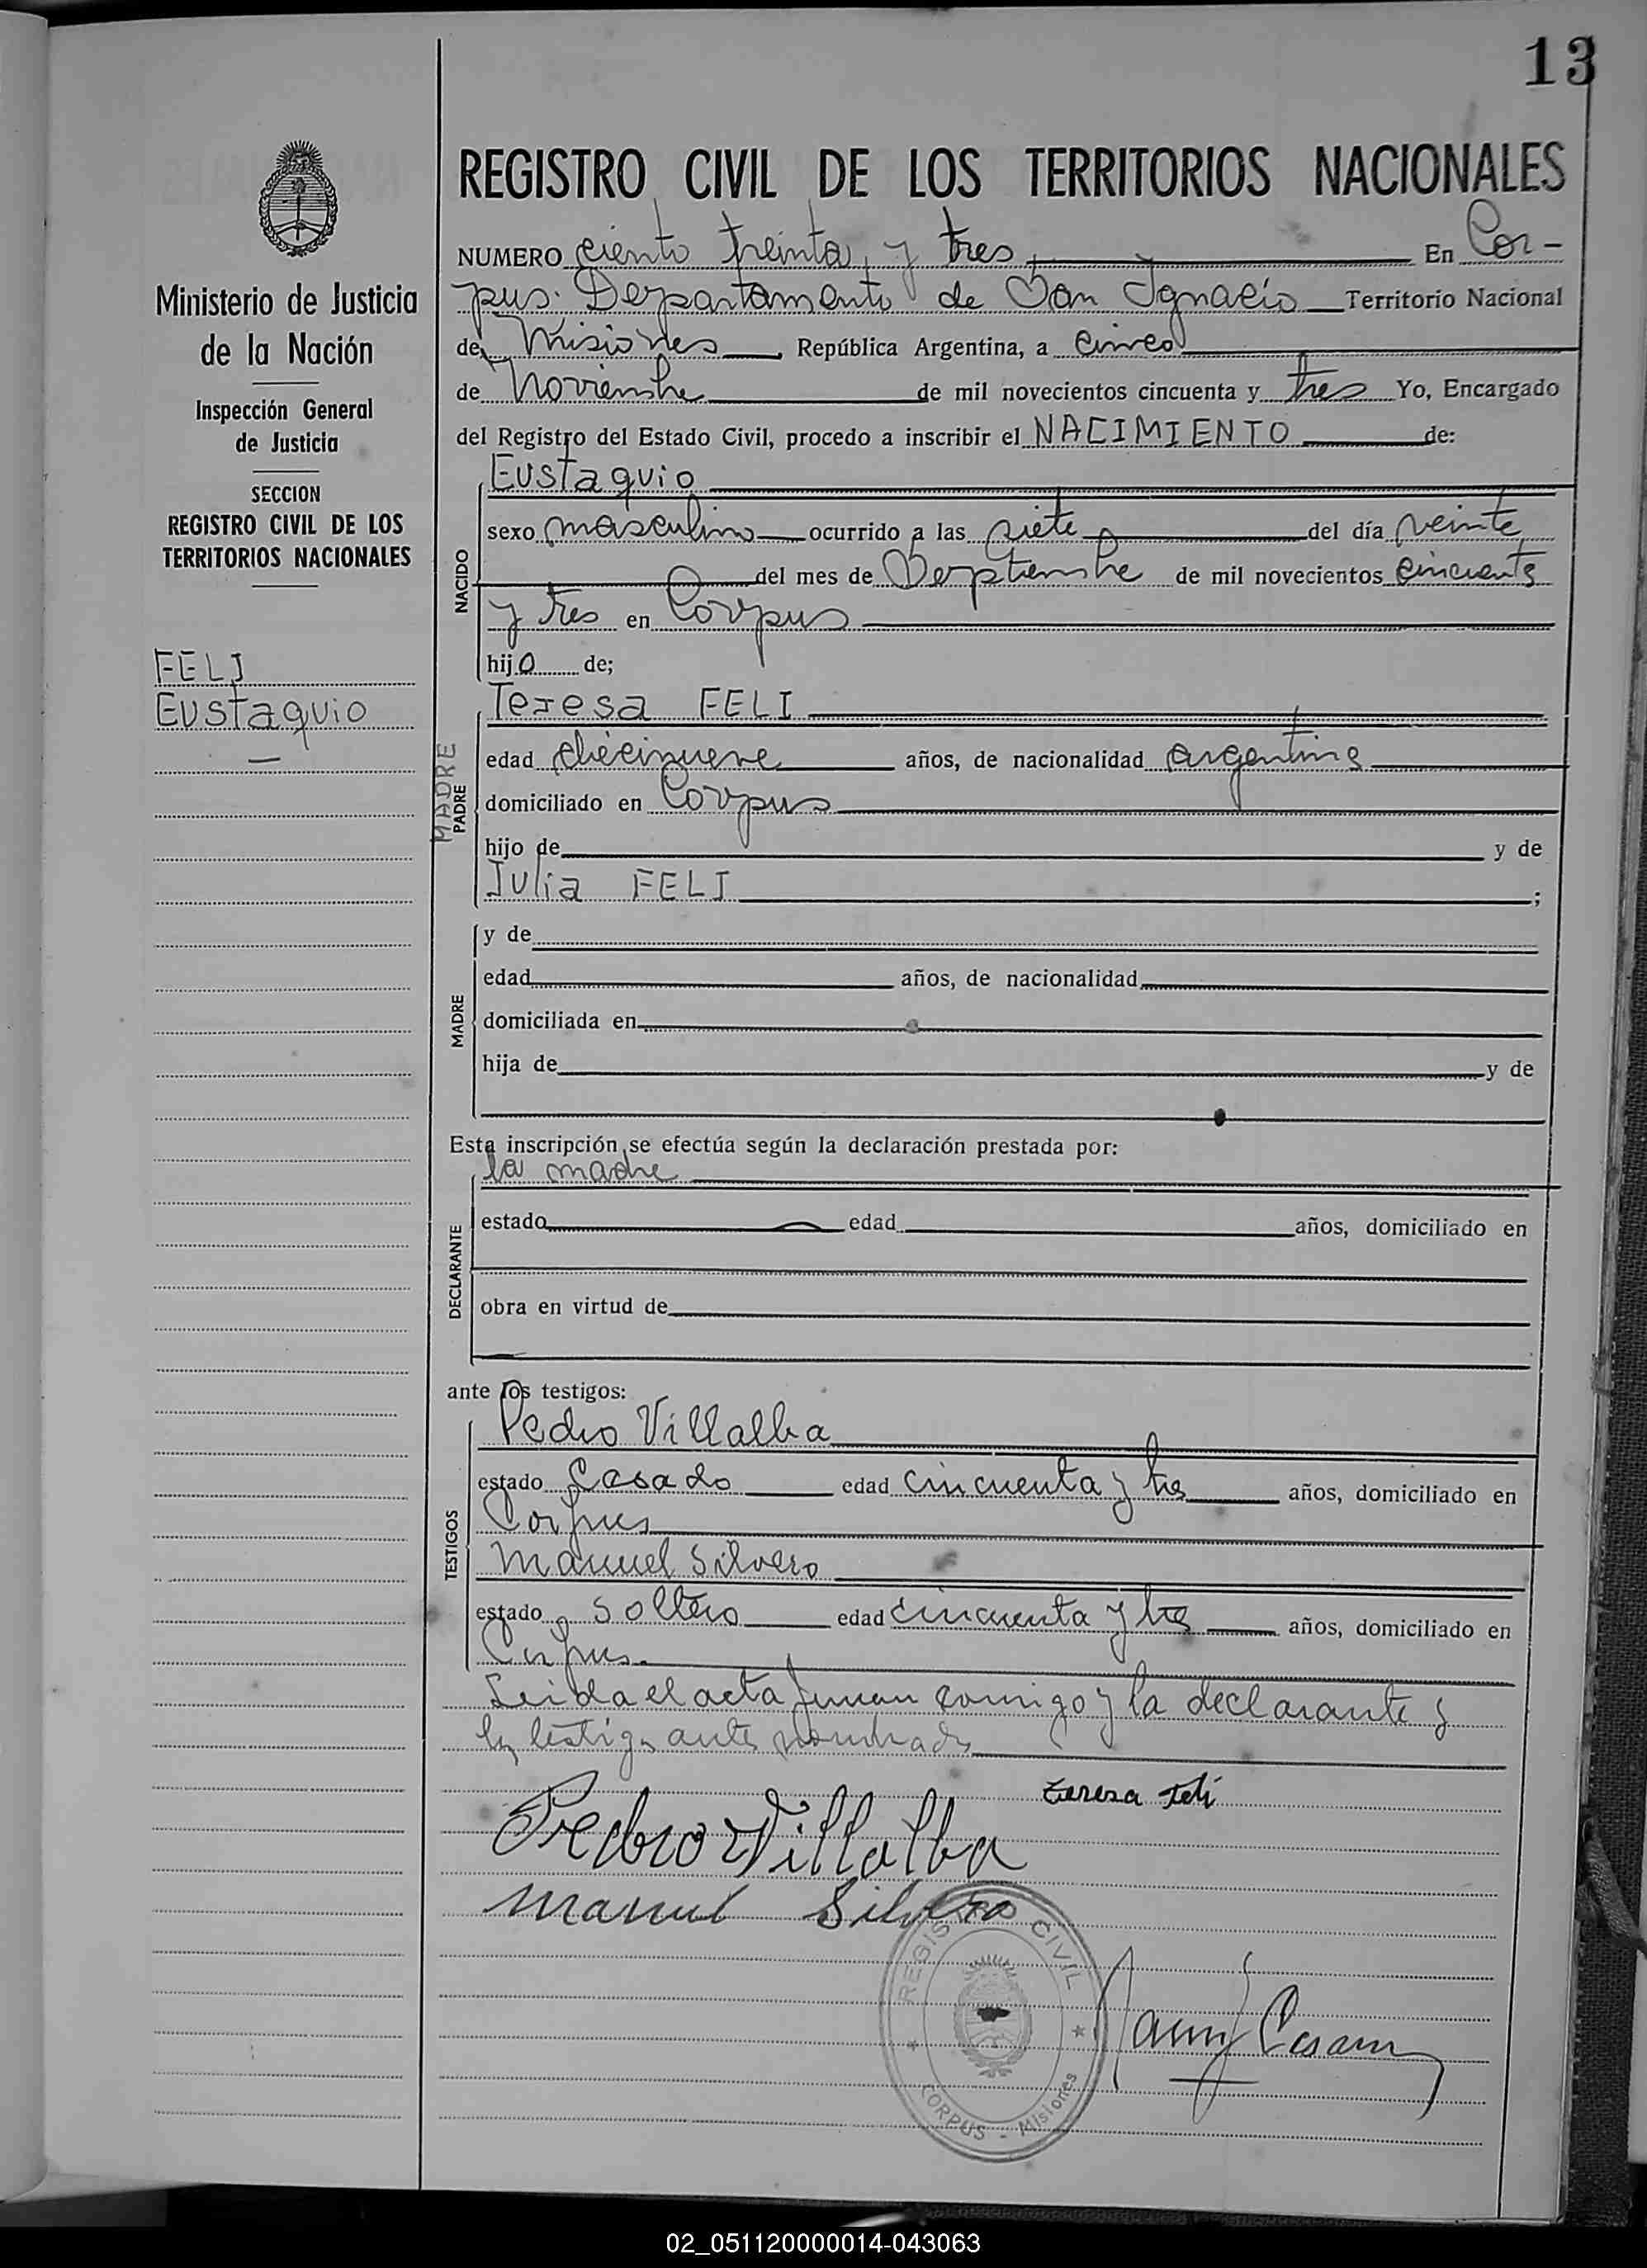 13
REGISTRO CIVIL DE LOS TERRITORIOS NACIONALES
Ministerio de Justicia
de la Nación
Inspección General
de Justicia
SECCION
REGISTRO CIVIL DE LOS
TERRITORIOS NACIONALES
FELI
Eustaquio
NUMERO ciento treinta y tres En Cor-
pus. Departamento de San Ignacio Territorio Nacional
de Misiones, República Argentina, a cinco
de Noviembre de mil novecientos cincuenta y tres Yo, Encargado
del Registro del Estado Civil, procedo a inscribir el NACIMIENTO de:
NACIDO
Eustaquio
sexo masculino ocurrido a las siete del día veinte
del mes de Septiembre de mil novecientos cincuenta
y tres en Corpus
hijo de;
MADRE
PADRE
Teresa FELI
edad diecinueve años, de nacionalidad argentina
domiciliado en Corpus
hijo de y de
Julia FELI ;
MADRE
y de
edad años, de nacionalidad
domiciliada en
hija de y de
Esta inscripción se efectúa según la declaración prestada por:
DECLARANTE
la madre
estado edad años, domiciliado en
obra en virtud de
ante los testigos:
TESTIGOS
Pedro Villalba
estado Casado edad cincuenta y tres años, domiciliado en
Corpus
Manuel Silvero
estado soltero edad cincuenta y tres años, domiciliado en
Corpus.
Leida el acta firman comigo y la declarante y
los testigos antes nombrados
teresa feli
Pedro Villalba
Manuel Silvero
REGISTRO CIVIL
CORPUS - Misiones
02_051120000014-043063